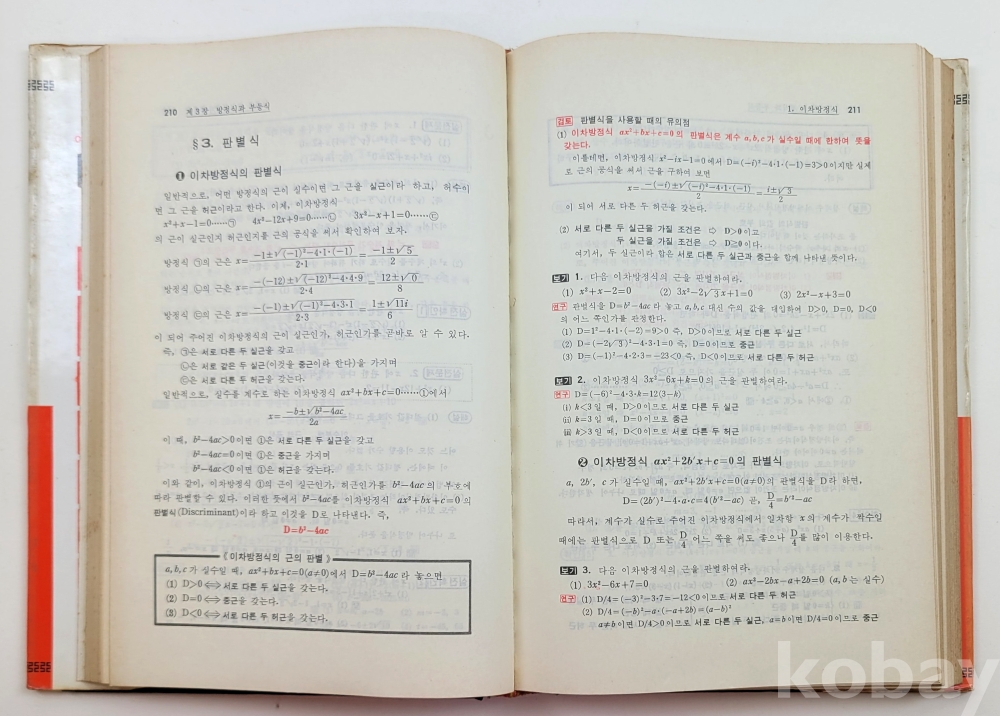 210 제 3 장 방정식과 부등식
§3. 판 별 식
❶ 이차방정식의 판별식
일반적으로, 어떤 방정식의 근이 실수이면 그 근을 실근이라 하고, 허수이
면 그 근을 허근이라고 한다. 이제, 이차방정식
x²+x−1=0……㉠ 4x²−12x+9=0……㉡ 3x²−x+1=0……㉢
의 근이 실근인지 허근인지를 근의 공식을 써서 확인하여 보자.
방정식 ㉠의 근은 x=(−1±√((−1)²−4·1·(−1)))/(2·1)=(−1±√5)/2
방정식 ㉡의 근은 x=(−(−12)±√((−12)²−4·4·9))/(2·4)=(12±√0)/8
방정식 ㉢의 근은 x=(−(−1)±√((−1)²−4·3·1))/(2·3)=(1±√11i)/6
이 되어 주어진 이차방정식의 근이 실근인가, 허근인가를 곧바로 알 수 있다.
즉, ㉠은 서로 다른 두 실근을 갖고
㉡은 서로 같은 두 실근(이것을 중근이라 한다)을 가지며
㉢은 서로 다른 두 허근을 갖는다.
일반적으로, 실수를 계수로 하는 이차방정식 ax²+bx+c=0……①에서
x=(−b±√(b²−4ac))/2a
이 때, b²−4ac>0이면 ①은 서로 다른 두 실근을 갖고
b²−4ac=0이면 ①은 중근을 가지며
b²−4ac<0이면 ①은 허근을 갖는다.
이와 같이, 이차방정식 ①의 근이 실근인가, 허근인가를 b²−4ac의 부호에
따라 판별할 수 있다. 이러한 뜻에서 b²−4ac를 이차방정식 ax²+bx+c=0의
판별식(Discriminant)이라 하고 이것을 D로 나타낸다. 즉,
D=b²−4ac
《이차방정식의 근의 판별》
a, b, c가 실수일 때, ax²+bx+c=0(a≠0)에서 D=b²−4ac라 놓으면
(1) D>0⟺서로 다른 두 실근을 갖는다.
(2) D=0⟺중근을 갖는다.
(3) D<0⟺서로 다른 두 허근을 갖는다.
1. 이차방정식 211
검토 판별식을 사용할 때의 유의점
(1) 이차방정식 ax²+bx+c=0의 판별식은 계수 a, b, c가 실수일 때에 한하여 뜻을
갖는다.
이를테면, 이차방정식 x²−ix−1=0에서 D=(−i)²−4·1·(−1)=3>0이지만 실제
로 근의 공식을 써서 근을 구하여 보면
x=(−(−i)±√((−i)²−4·1·(−1)))/2=(i±√3)/2
이 되어 서로 다른 두 허근을 갖는다.
(2) 서로 다른 두 실근을 가질 조건은 ⇨ D>0이고
두 실근을 가질 조건은 ⇨ D≧0이다.
여기서, 두 실근이라 함은 서로 다른 두 실근과 중근을 함께 나타낸 뜻이다.
보기 1. 다음 이차방정식의 근을 판별하여라.
(1) x²+x−2=0 (2) 3x²−2√3x+1=0 (3) 2x²−x+3=0
연구 판별식을 D=b²−4ac라 놓고, a, b, c 대신 수의 값을 대입하여 D>0, D=0, D<0
의 어느 쪽인가를 판정한다.
(1) D=1²−4·1·(−2)=9>0 즉, D>0이므로 서로 다른 두 실근
(2) D=(−2√3)²−4·3·1=0 즉, D=0이므로 중근
(3) D=(−1)²−4·2·3=−23<0 즉, D<0이므로 서로 다른 두 허근
보기 2. 이차방정식 3x²−6x+k=0의 근을 판별하여라.
연구 D=(−6)²−4·3·k=12(3−k)
(i) k<3일 때, D>0이므로 서로 다른 두 실근
(ii) k=3일 때, D=0이므로 중근
(iii) k>3일 때, D<0이므로 서로 다른 두 허근
❷ 이차방정식 ax²+2b′x+c=0의 판별식
a, 2b′, c가 실수일 때, ax²+2b′x+c=0(a≠0)의 판별식을 D라 하면,
D=(2b′)²−4·a·c=4(b′²−ac) 곧, D/4=b′²−ac
따라서, 계수가 실수로 주어진 이차방정식에서 일차항 x의 계수가 짝수일
때에는 판별식으로 D 또는 D/4 어느 쪽을 써도 좋으나 D/4를 많이 이용한다.
보기 3. 다음 이차방정식의 근을 판별하여라.
(1) 3x²−6x+7=0 (2) ax²−2bx−a+2b=0 (a, b는 실수)
연구 (1) D/4=(−3)²−3·7=−12<0이므로 서로 다른 두 허근
(2) D/4=(−b)²−a·(−a+2b)=(a−b)²
a≠b이면 D/4>0이므로 서로 다른 두 실근, a=b이면 D/4=0이므로 중근
kobay